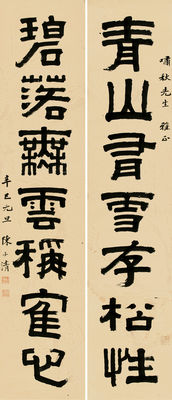 嘯秋先生 雅正
青山有雪存松性
碧落無雲稱隺心
辛巳元旦 陳子清